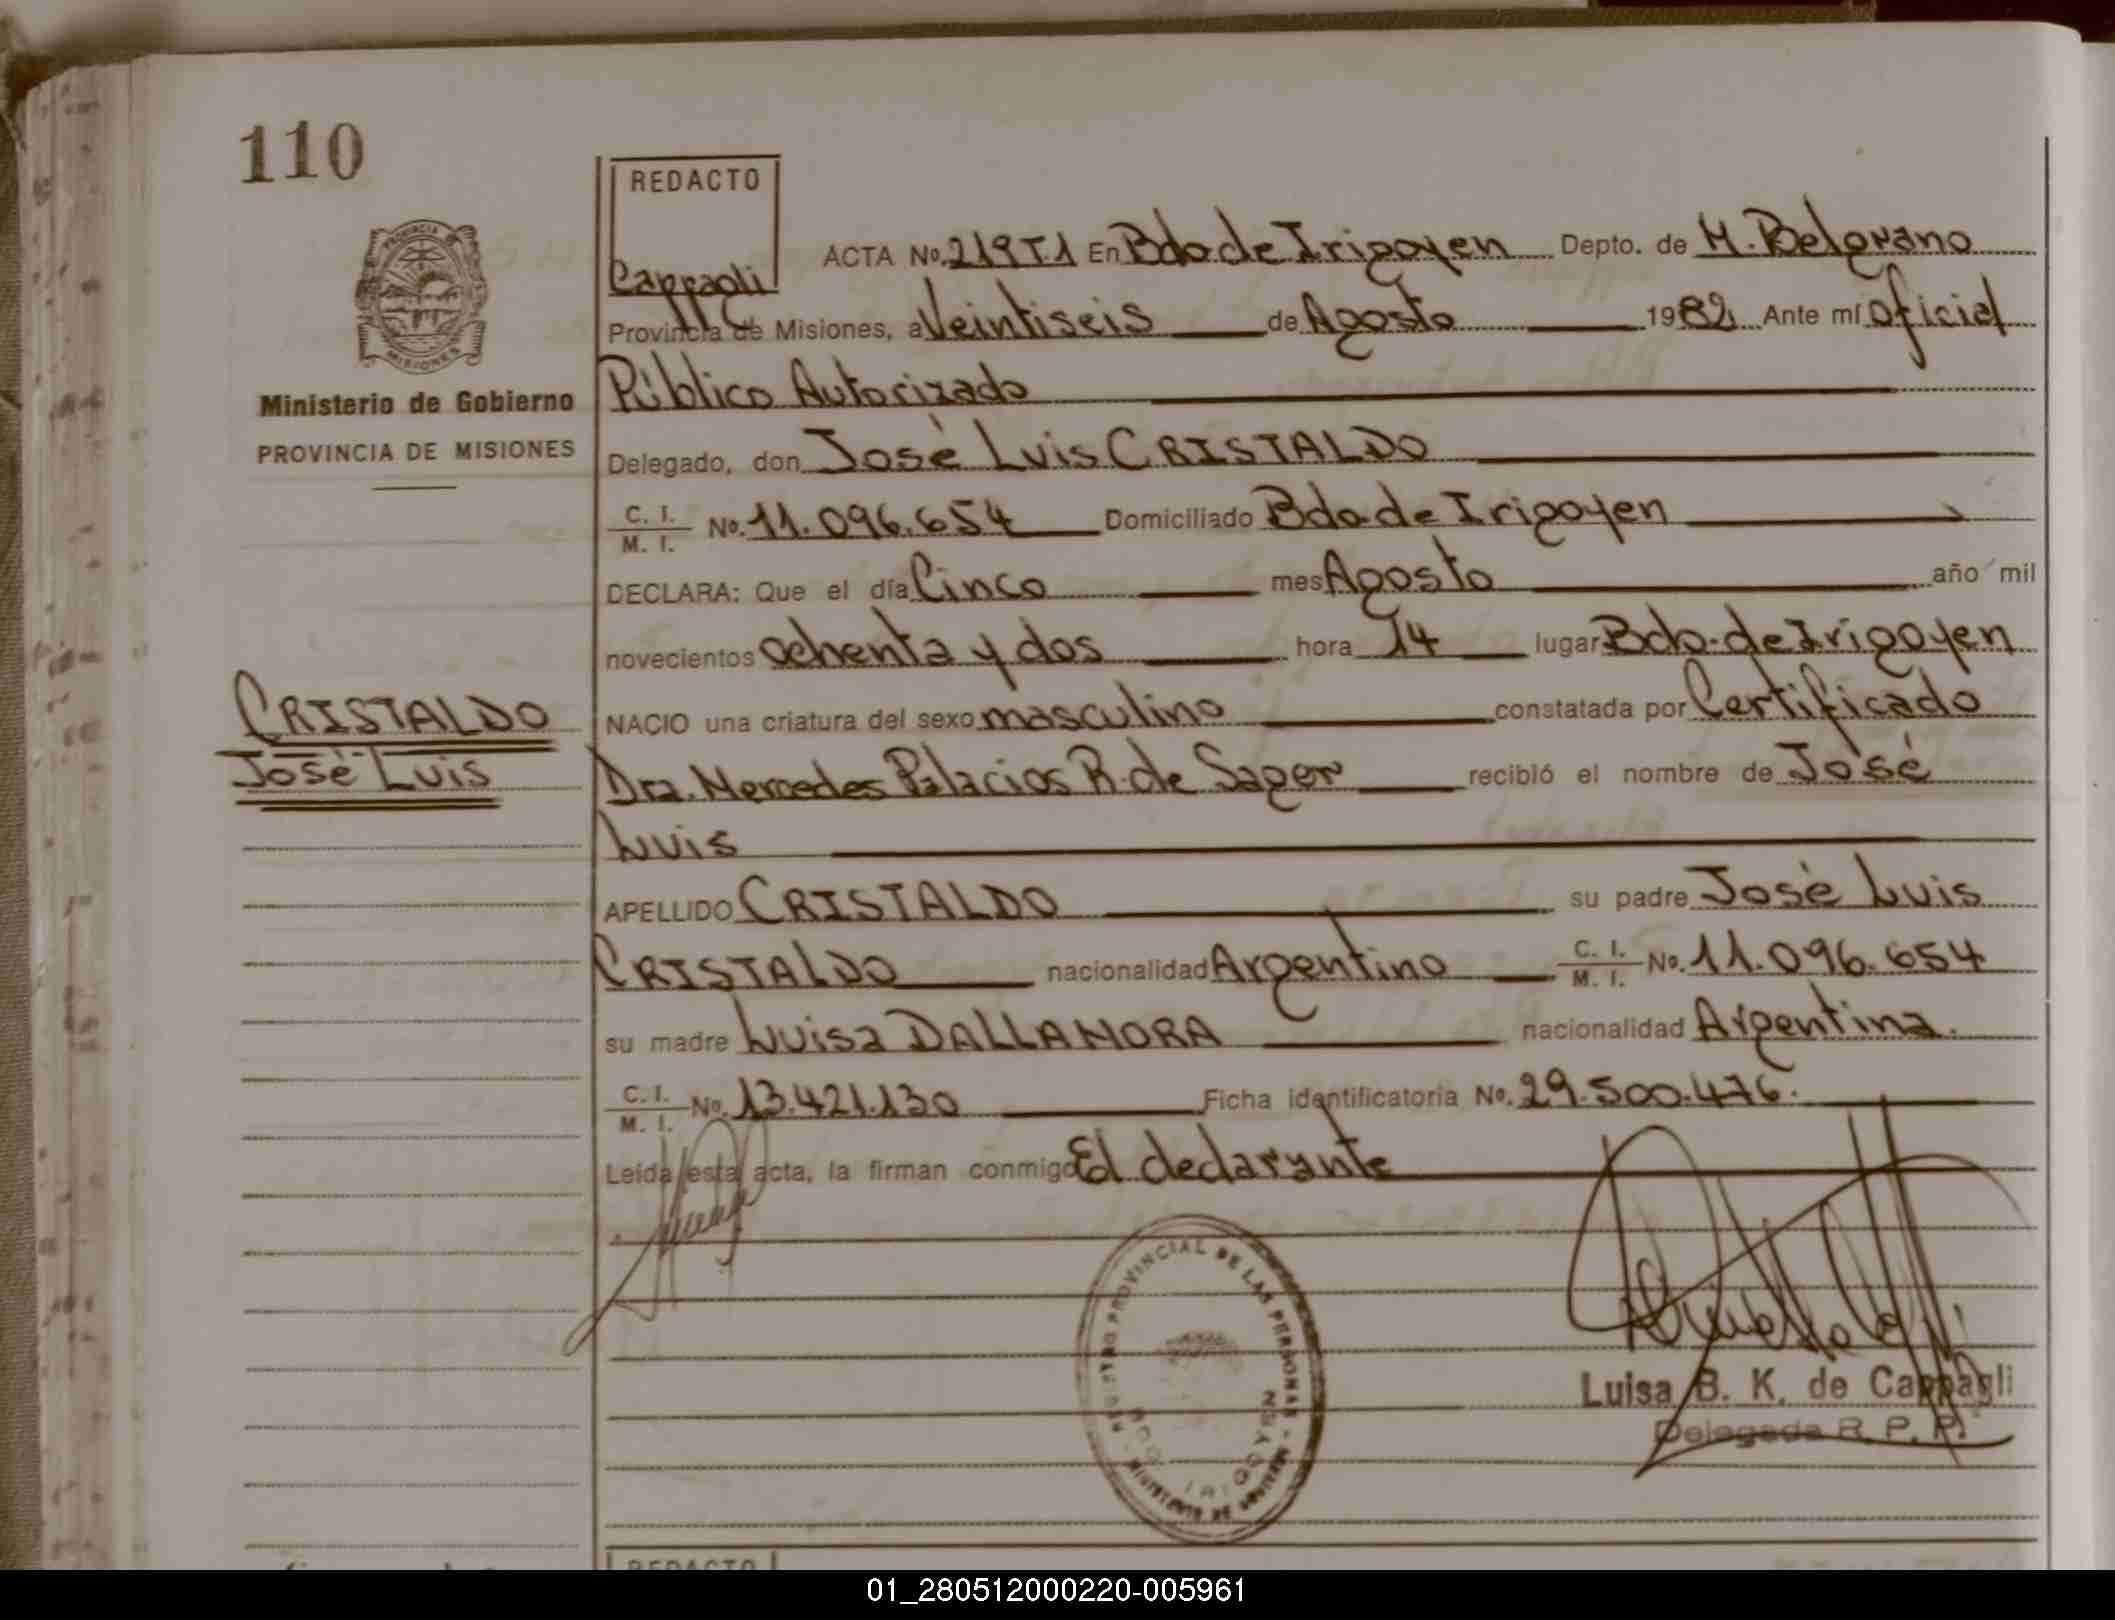 110
REDACTO
Cappagli
PROVINCIA DE
MISIONES
Ministerio de Gobierno
PROVINCIA DE MISIONES
ACTA No. 219 T.1 En Bdo de Irigoyen Depto. de M. Belgrano
Provincia de Misiones, a Veintiseis de Agosto 1982 Ante mí Oficial
Público Autorizado
Delegado, don José Luis CRISTALDO
C. I.
M. I. No. 11.096.654 Domiciliado Bdo. de Irigoyen
DECLARA: Que el día Cinco mes Agosto año mil
novecientos ochenta y dos hora 14 lugar Bdo. de Irigoyen
CRISTALDO
José Luis
NACIO una criatura del sexo masculino constatada por Certificado
Dra. Mercedes Palacios R. de Sager recibió el nombre de José
Luis
APELLIDO CRISTALDO su padre José Luis
CRISTALDO nacionalidad Argentino C. I.
M. I. No. 11.096.654
su madre Luisa DALLAMORA nacionalidad Argentina.
C. I.
M. I. No. 13.421.130 Ficha identificatoria No. 29.500.476.
Leída esta acta, la firman conmigo El declarante
REGISTRO PROVINCIAL DE LAS PERSONAS - MINISTERIO DE GOBIERNO
BDO. IRIGOYEN
Luisa B. K. de Cappagli
Delegada R. P. P.
REDACTO
01_280512000220-005961